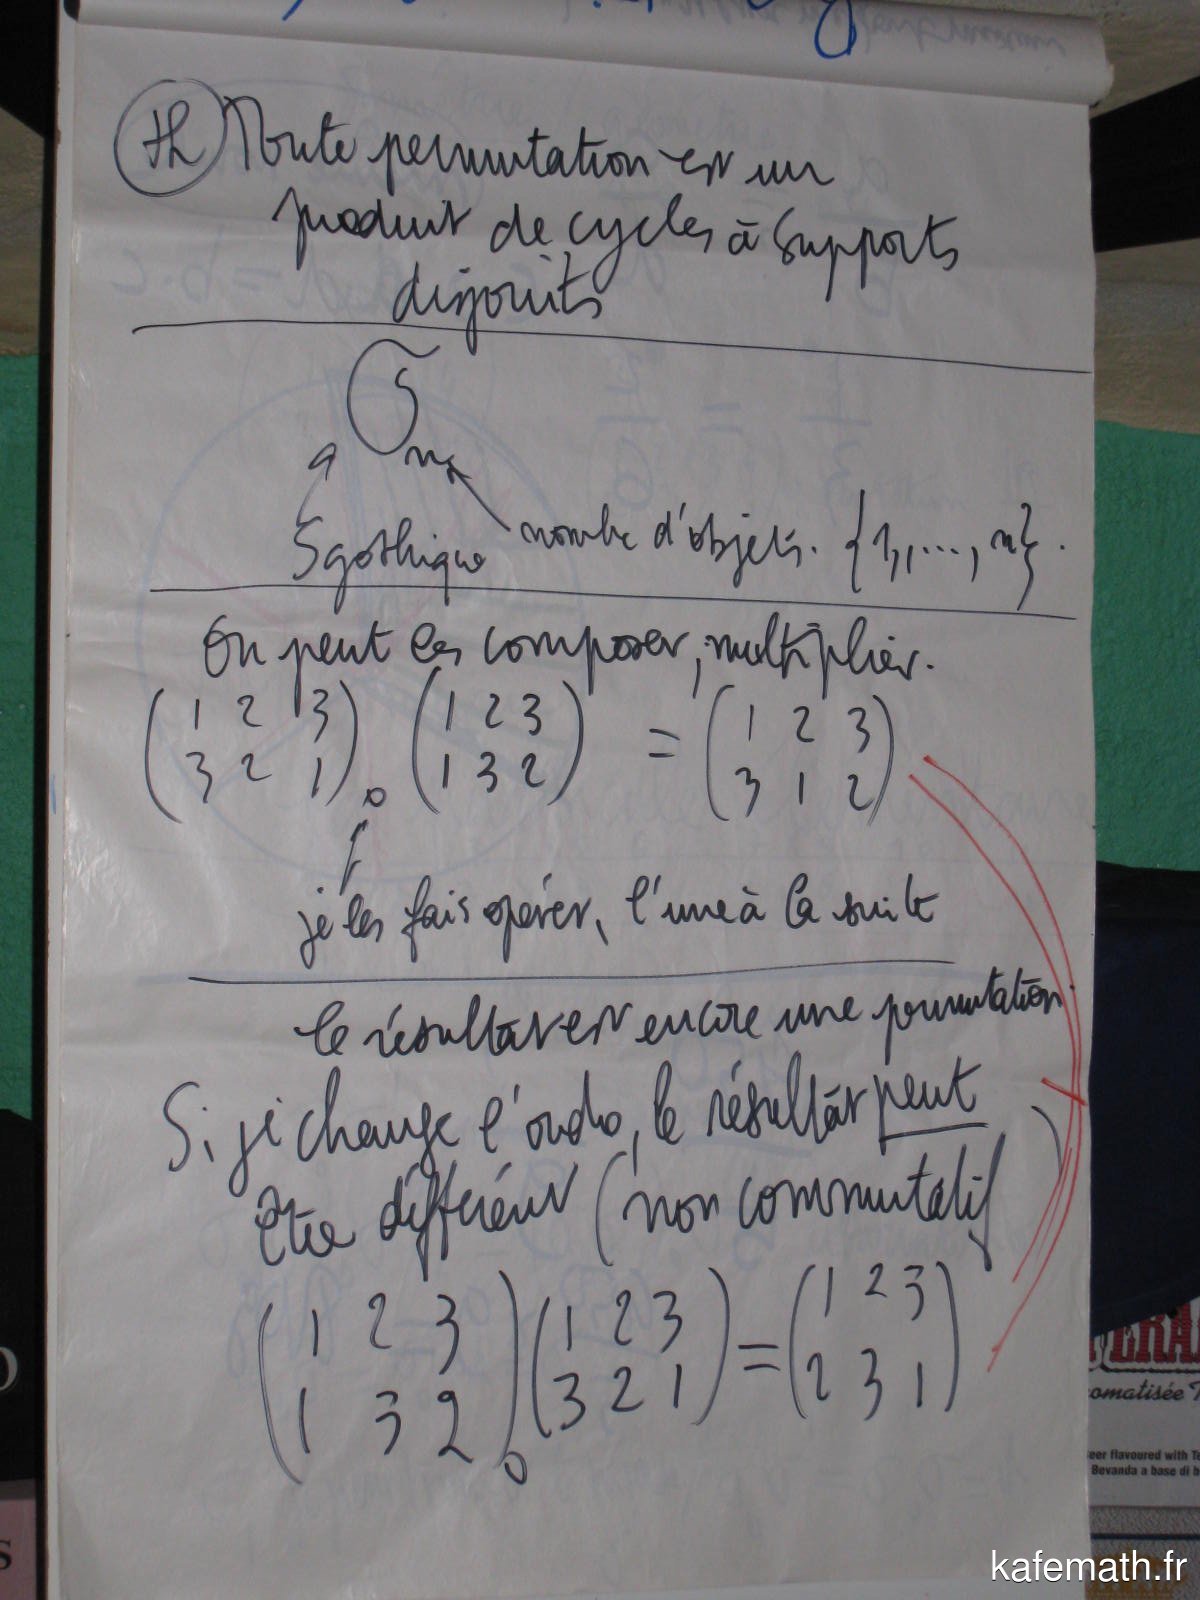 th Toute permutation est un
produit de cycles à supports
disjoints
𝔖n
S gothique nombre d'objets. {1,,...., n}.
On peut les composer, multiplier.
(1 2 3) (1 2 3) = (1 2 3)
(3 2 1) o (1 3 2) (3 1 2)
je les fais opérer, l'une à la suite
le résultat est encore une permutation.
Si je change l'ordre, le résultat peut
être différent (non commutatif)
(1 2 3) (1 2 3) = (1 2 3)
(1 3 2) o (3 2 1) (2 3 1)
ERA
omatisée T
eer flavoured with Te
Bevanda a base di b
kafemath.fr